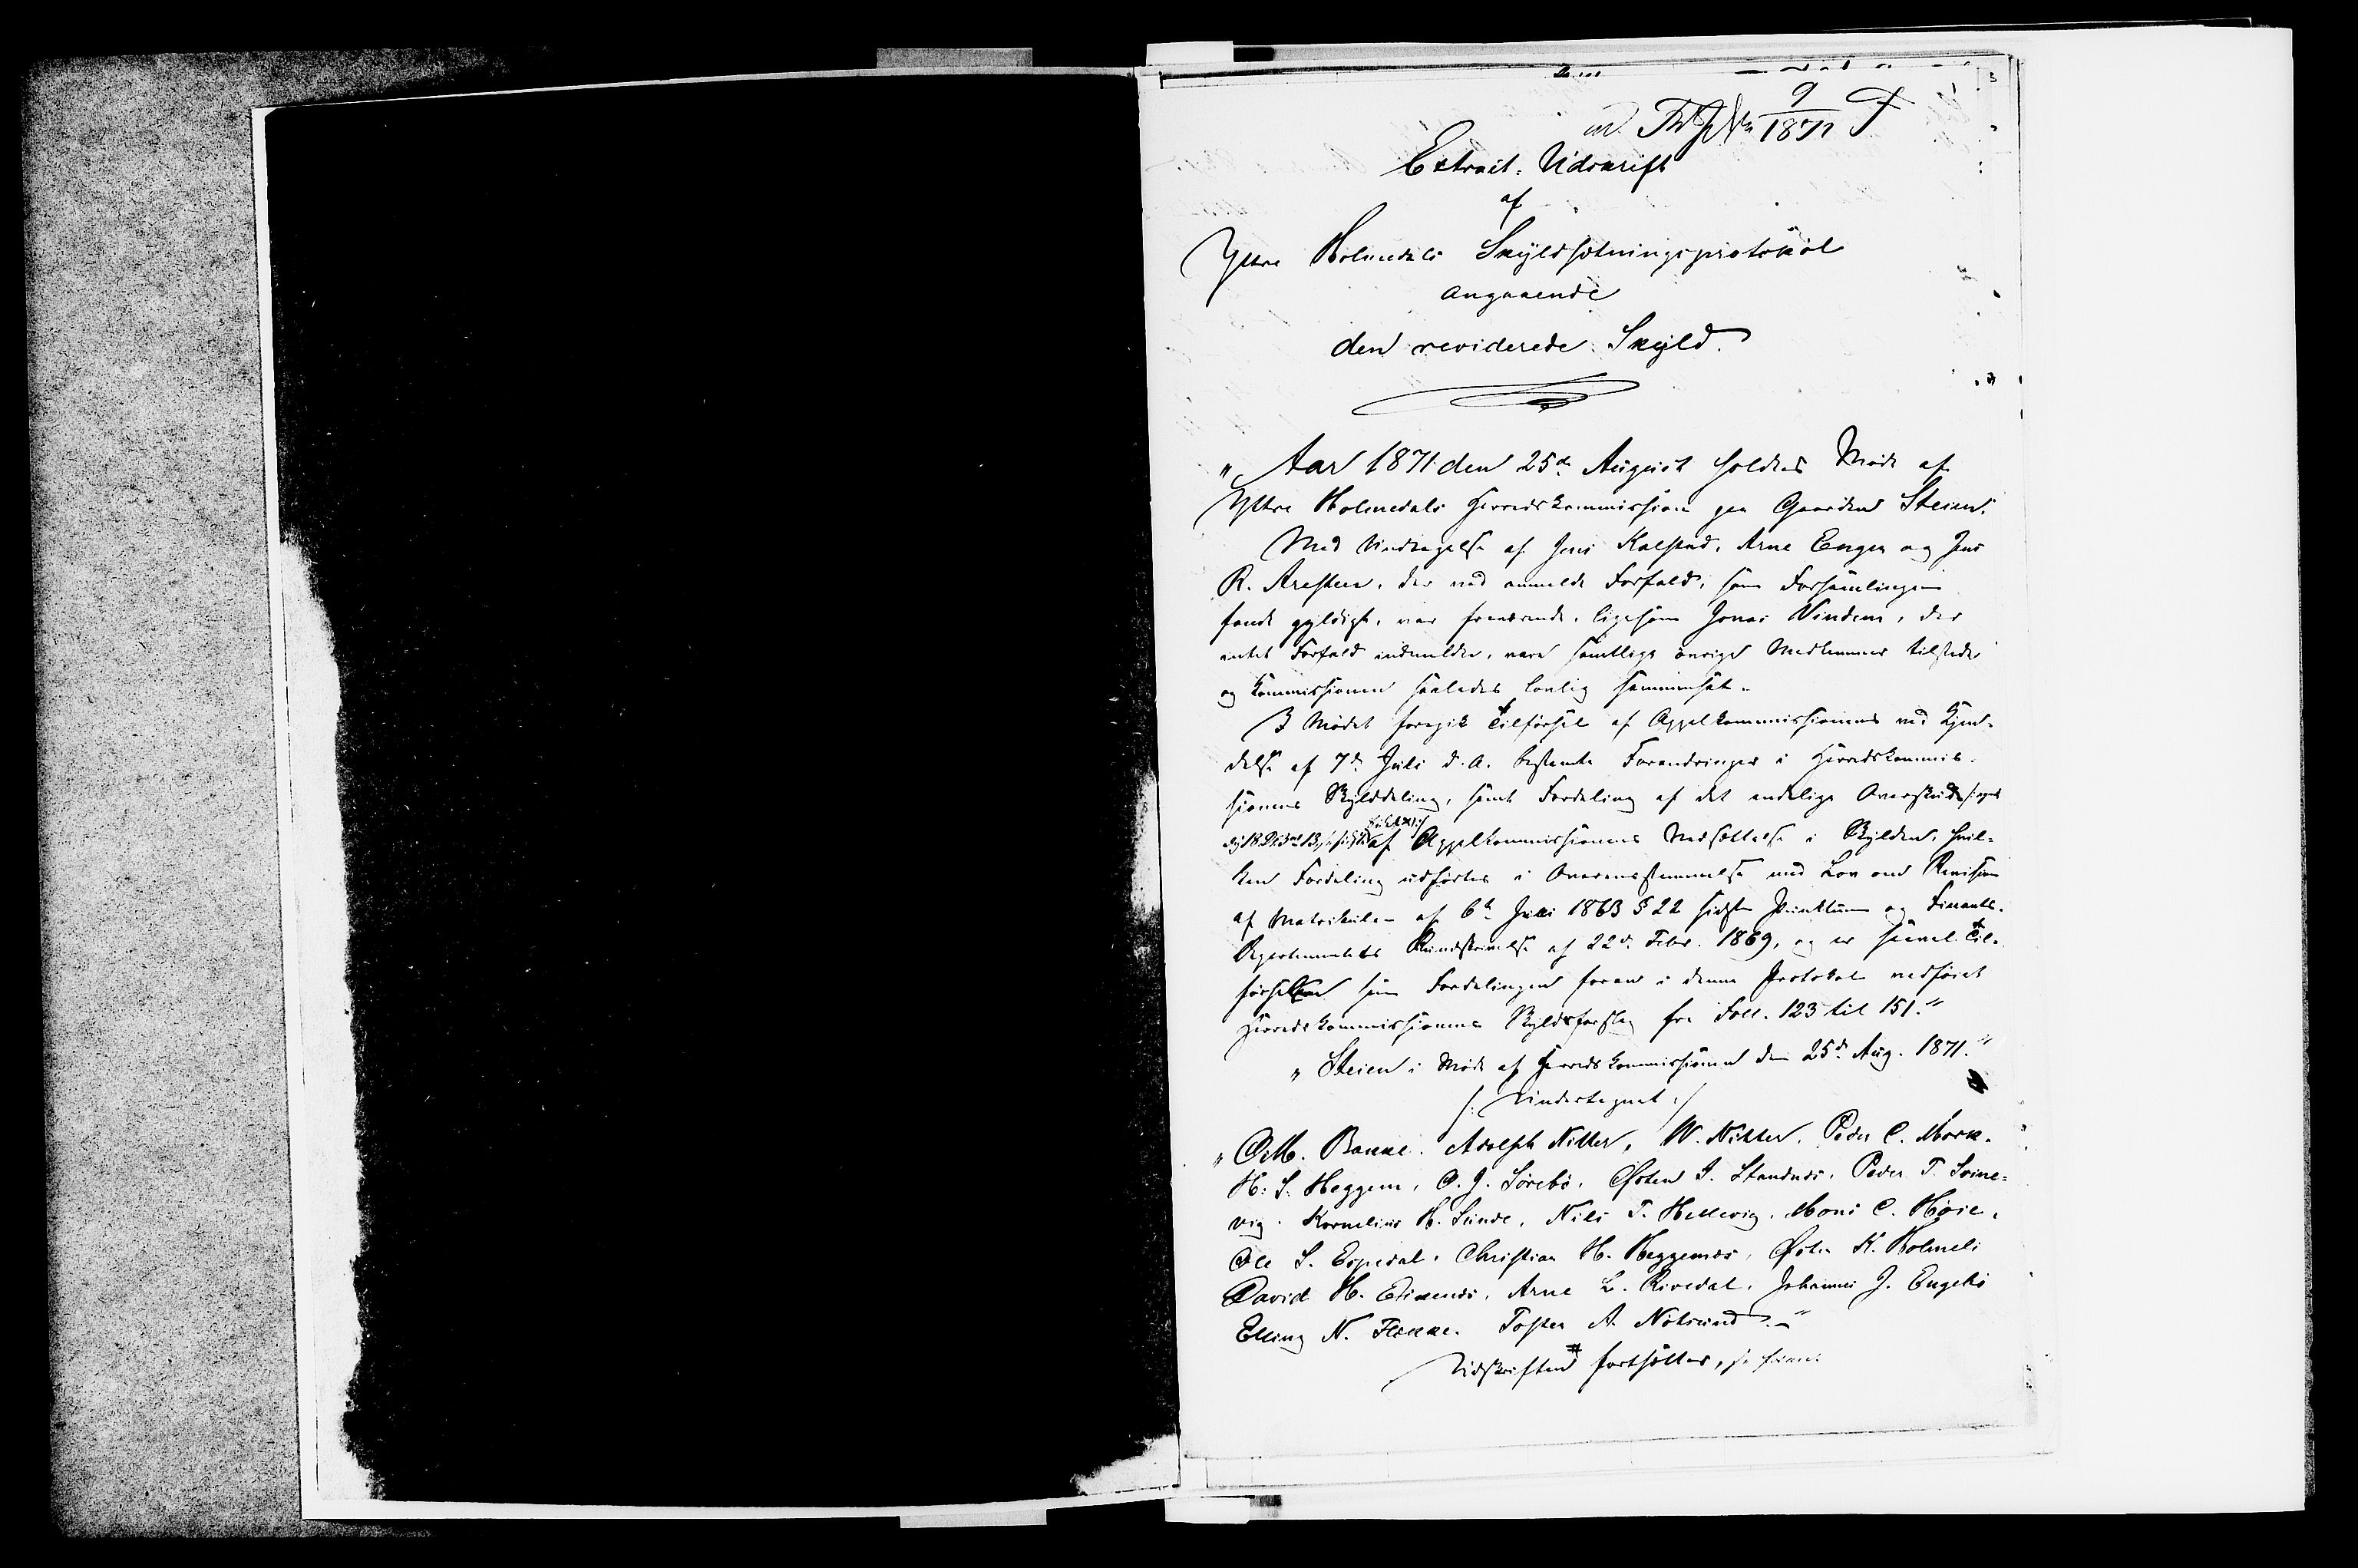 9
1871
Extract-Udskrift
af
Yttre Holmedals Skyldsætningsprotokol
angaaende
den reviderede Skyld.
"Aar 1871 den 25de August holdtes Møde af
Yttre Holmedals Herredskommission paa Gaarden Steien.
Med Undtagelse af Jens Kalstad, Arne Engen og Jens
R. Aresteen, der ved anmeldt Forfald, som Forsamlingen
fandt gyldigt, var fraværende, ligesom Jonas Vindem, der
intet Forfald indmeldte, vare samtlige øvrige Medlemmer tilstede
og Kommissionen saaledes lovlig sammensat.
I Mødet foregik Tilførsel af Appelkommissionens ved Kjen-
delse af 7de Juli d. A. bestemte Forandringer i Herredskommis-
sionens Skylddeling, samt Fordeling af det endelige Overskud
af Appelkommissionens Nedsættelse i Skylden, hvil-
ken Fordeling udførtes i Overensstemmelse med Lov om Revision
af Matrikulen af 6te Juni 1863 § 22 sidste Punktum og Finants-
Departementets Rundskrivelse af 22de Febr. 1869, og er saavel Til-
førselen som Fordelingen foran i denne Protokol vedføiet
Herredskommissionens Skyldforslag fra Foll. 123 til 151."
"Steien i Møde af Herredskommissionen den 25de Aug. 1871."
/: Undertegnet :/
"O. M. Bakke. Adolph Nitter, W. Nitter. Peder C. Mork.
H. S. Heggem, O. J. Sørebø, Østen I. Standnæs. Peder T. Svine-
vig. Kornelius H. Sunde, Nils T. Hellevig. Mons C. Høie,
Ole S. Espedal. Christian H. Heggenæs, Østen K. Holmeli
David H. Eskenæs, Arne L. Rivedal, Johannes J. Engebø
Elling N. Flekke. Tosten A. Nøtsund."
Udskriften fortsættes,